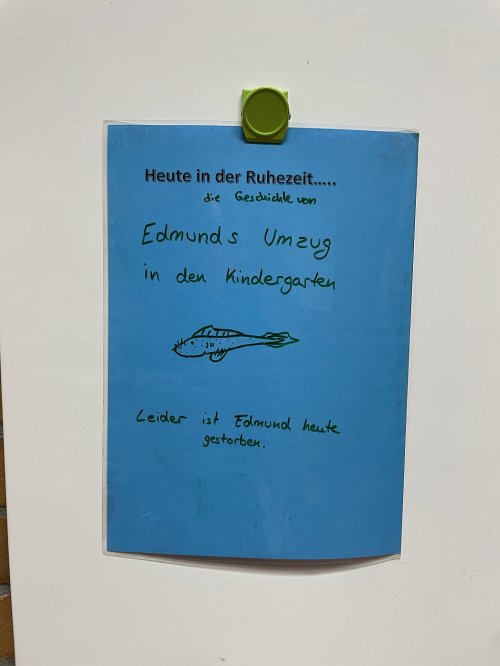 Heute in der Ruhezeit.....
die Geschichte von
Edmunds Umzug
in den Kindergarten
Leider ist Edmund heute
gestorben.